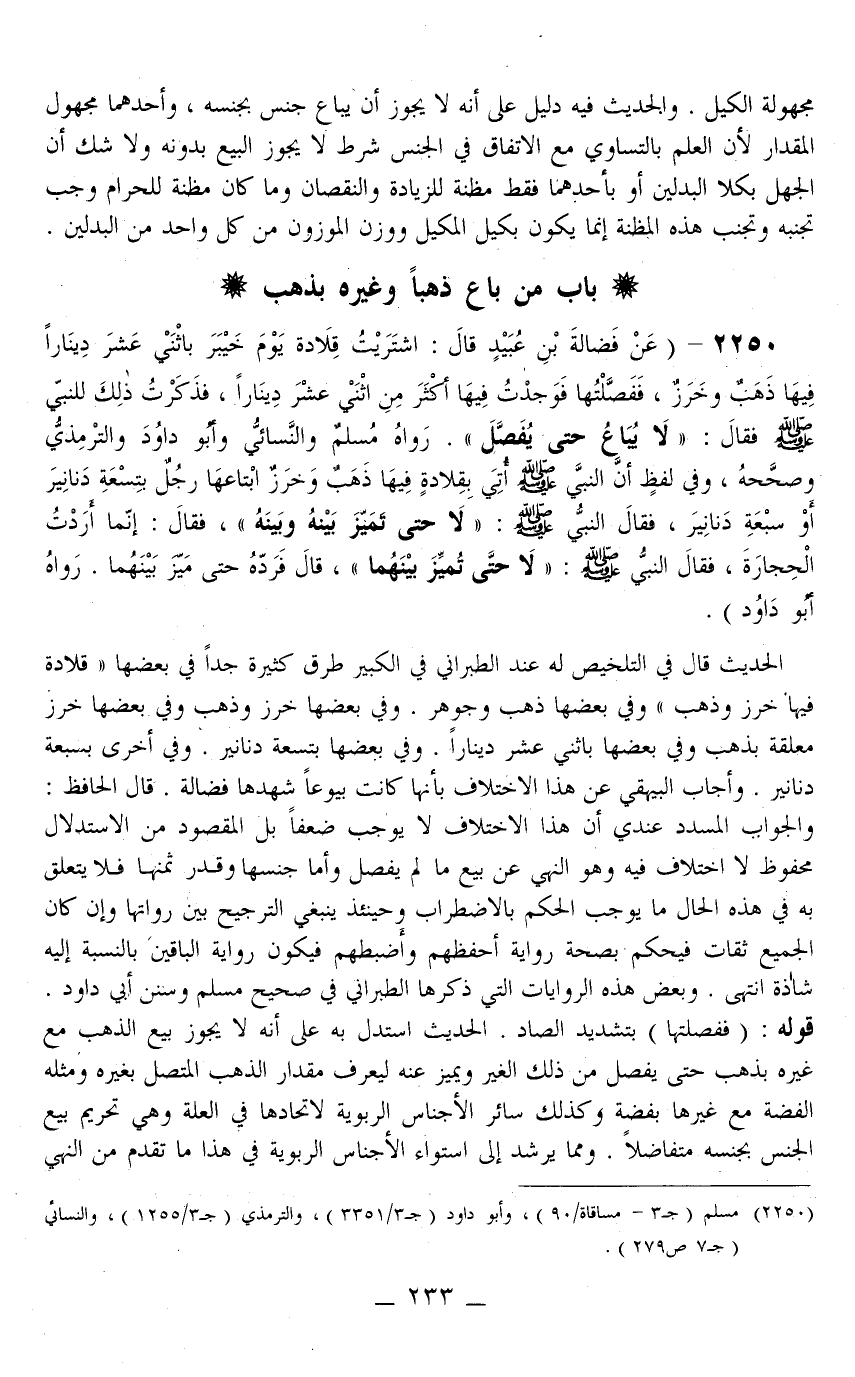 مجهولة الكيل . والحديث فيه دليل على أنه لا يجوز أن يباع جنس بجنسه ، وأحدهما مجهول
المقدار لأن العلم بالتساوي مع الاتفاق في الجنس شرط لا يجوز البيع بدونه ولا شك أن
الجهل بكلا البدلين أو بأحدهما فقط مظنة للزيادة والنقصان وما كان مظنة للحرام وجب
تجنبه وتجنب هذه المظنة إنما يكون بكيل المكيل ووزن الموزون من كل واحد من البدلين .
✸ باب من باع ذهباً وغيره بذهب ✸
٢٢٥٠ - ( عَنْ فَضالةَ بْنِ عُبَيْدٍ قالَ : اشتَرَيْتُ قِلادة يَوْمَ خَيْبَرَ باثْنَيْ عَشَرَ دِينَاراً
فِيهَا ذَهَبٌ وخَرَزٌ ، فَفَصَّلْتُها فَوَجدْتُ فِيهَا أكْثَرَ مِنِ اثْنَيْ عشْرَ دِينَاراً ، فذَكَرْتُ ذٰلِكَ للنبيّ
ﷺ فقالَ : « لَا يُبَاعُ حتى يُفَصَّلَ » . رَواهُ مُسلمٌ والنَّسائيُّ وأبُو داوُدَ والترْمِذيُّ
وصحَّحهُ ، وفي لفظٍ أنَّ النبيَّ ﷺ أُتِيَ بِقِلادةٍ فِيهَا ذَهَبٌ وَخَرَزٌ ابْتاعهَا رجُلٌ بتِسْعَةِ دَنانِيرَ
أوْ سبْعَةِ دَنانِيرَ ، فقالَ النبيُّ ﷺ : « لَا حتى تَمَيّزَ بَيْنهُ وبَينَهُ » ، فقالَ : إنّما أَرَدْتُ
الْحِجارَةَ ، فقالَ النبيُّ ﷺ : « لَا حتَّى تُميِّزَ بيْنَهُما » ، قالَ فَرَدّهُ حتى مَيّزَ بَيْنَهُما . رَواهُ
أبُو دَاوُد ) .
الحديث قال في التلخيص له عند الطبراني في الكبير طرق كثيرة جداً في بعضها « قلادة
فيها خرز وذهب » وفي بعضها ذهب وجوهر . وفي بعضها خرز وذهب وفي بعضها خرز
معلقة بذهب وفي بعضها باثني عشر ديناراً . وفي بعضها بتسعة دنانير . وفي أخرى بسبعة
دنانير . وأجاب البيهقي عن هذا الاختلاف بأنها كانت بيوعاً شهدها فضالة . قال الحافظ :
والجواب المسدد عندي أن هذا الاختلاف لا يوجب ضعفاً بل المقصود من الاستدلال
محفوظ لا اختلاف فيه وهو النهي عن بيع ما لم يفصل وأما جنسها وقدر ثمنها فلا يتعلق
به في هذه الحال ما يوجب الحكم بالاضطراب وحينئذ ينبغي الترجيح بين رواتها وإن كان
الجميع ثقات فيحكم بصحة رواية أحفظهم وأضبطهم فيكون رواية الباقين بالنسبة إليه
شاذة انتهى . وبعض هذه الروايات التي ذكرها الطبراني في صحيح مسلم وسنن أبي داود .
قوله : ( ففصلتها ) بتشديد الصاد . الحديث استدل به على أنه لا يجوز بيع الذهب مع
غيره بذهب حتى يفصل من ذلك الغير ويميز عنه ليعرف مقدار الذهب المتصل بغيره ومثله
الفضة مع غيرها بفضة وكذلك سائر الأجناس الربوية لاتحادها في العلة وهي تحريم بيع
الجنس بجنسه متفاضلاً . ومما يرشد إلى استواء الأجناس الربوية في هذا ما تقدم من النهي
(٢٢٥٠) مسلم ( جـ٣ - مساقاة/٩٠ ) ، وأبو داود ( جـ٣/٣٣٥١ ) ، والترمذي ( جـ٣/١٢٥٥ ) ، والنسائي
( جـ٧ ص٢٧٩ ) .
_ ٢٣٣ _